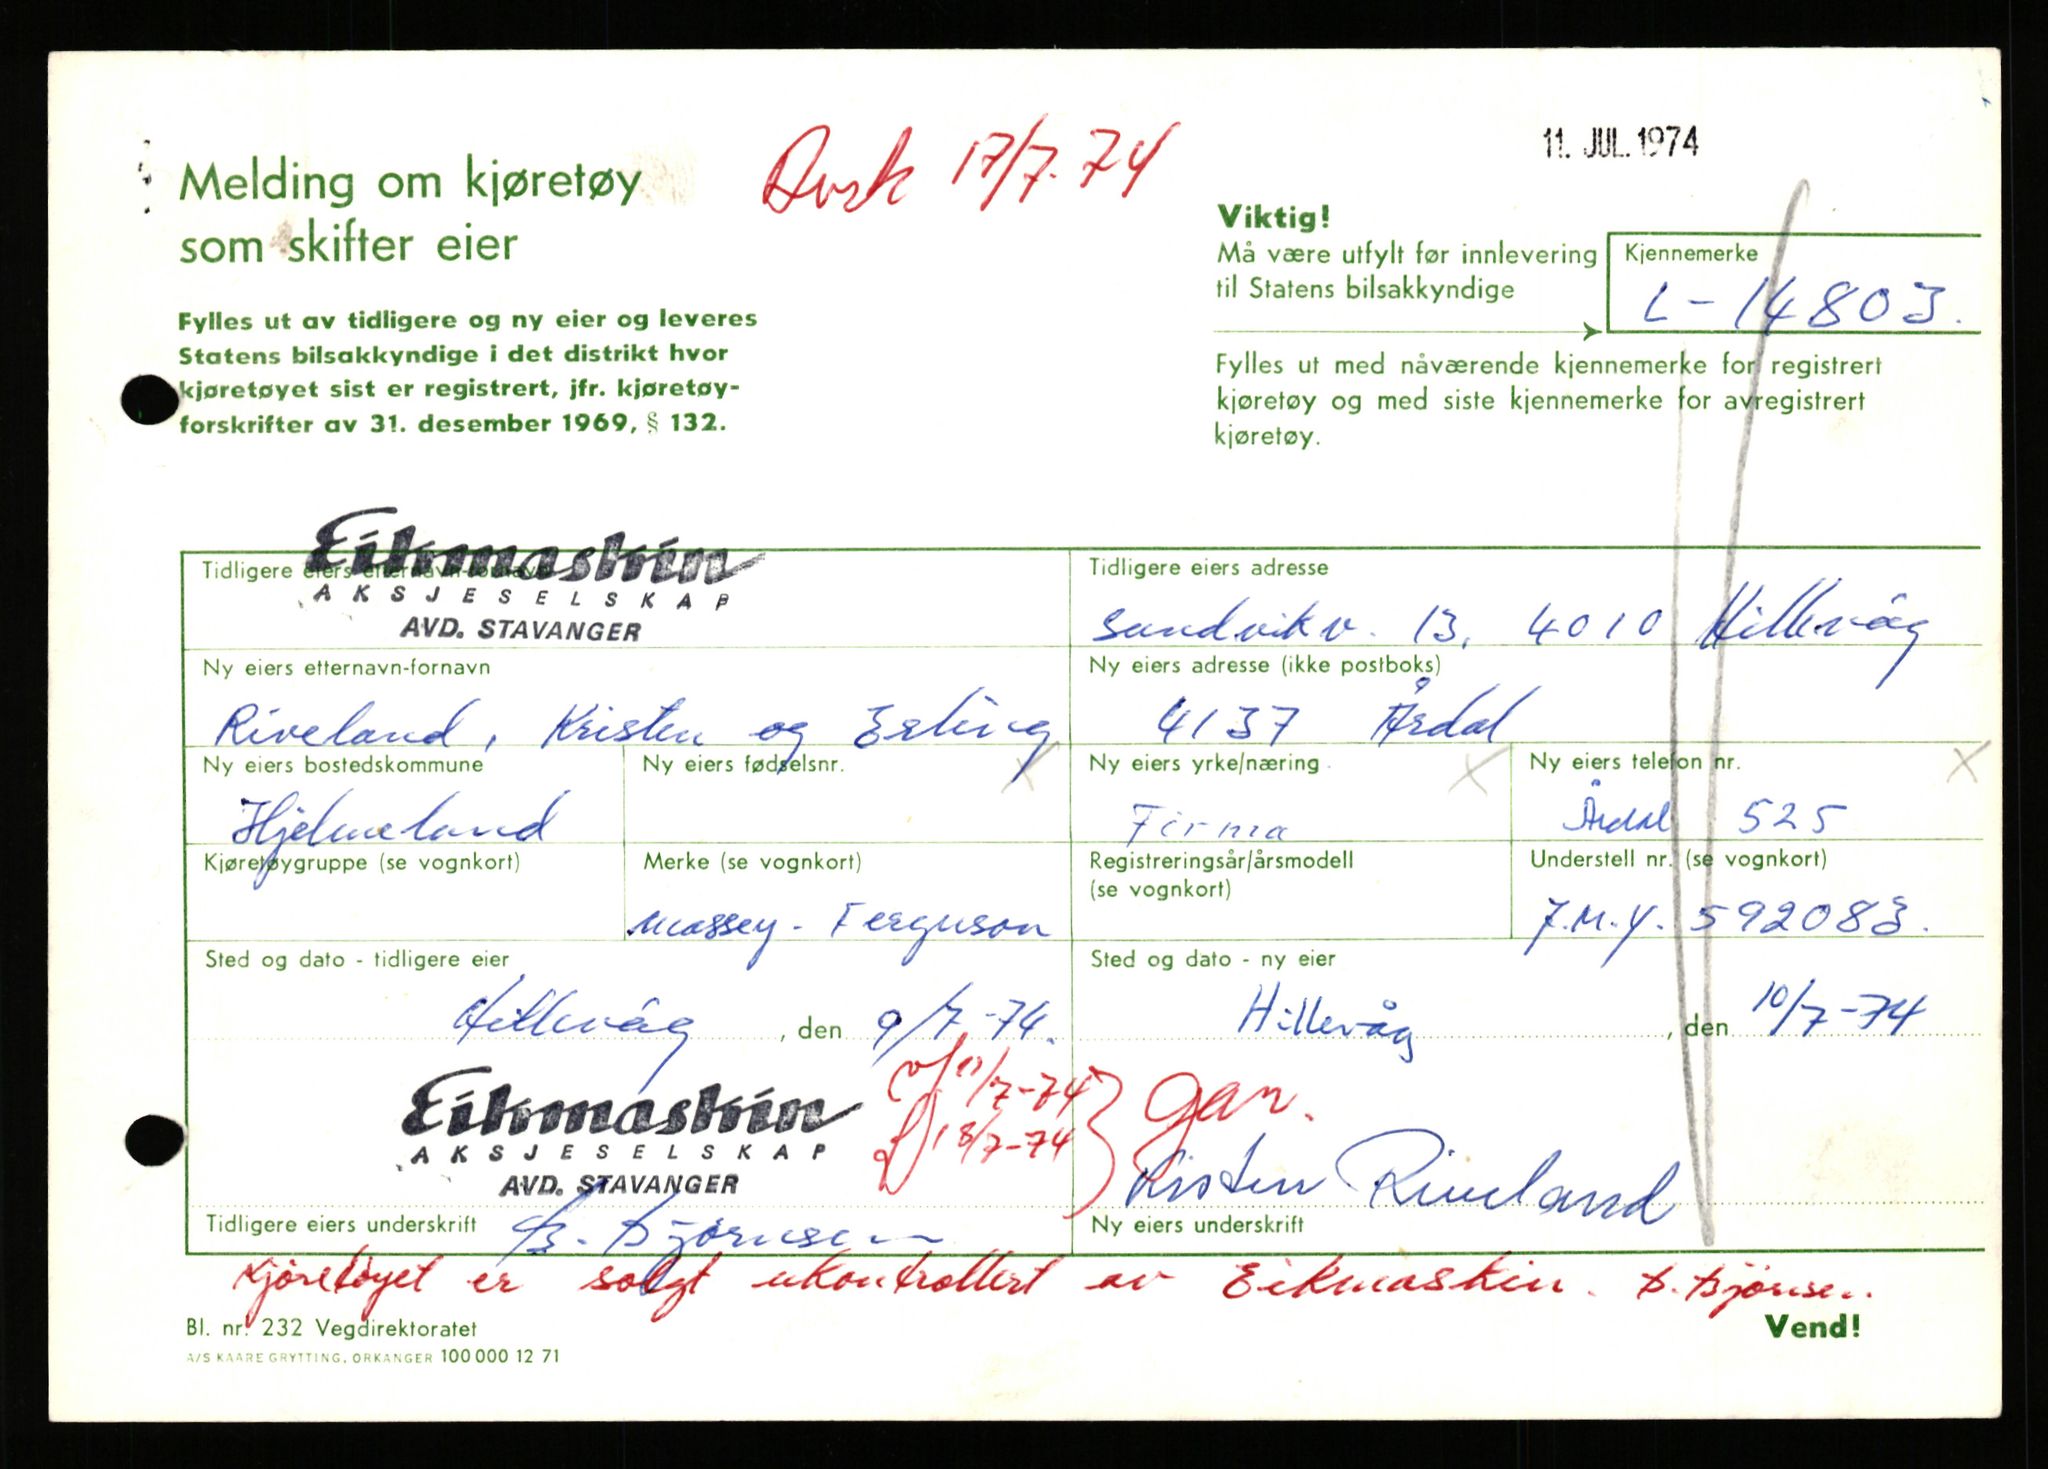 11. JUL. 1974
Avsk 17/7.74
Melding om kjøretøy
som skifter eier
Fylles ut av tidligere og ny eier og leveres
Statens bilsakkyndige i det distrikt hvor
kjøretøyet sist er registrert, jfr. kjøretøy-
forskrifter av 31. desember 1969, § 132.
Viktig!
Må være utfylt før innlevering
til Statens bilsakkyndige
Kjennemerke
L-14803.
Fylles ut med nåværende kjennemerke for registrert
kjøretøy og med siste kjennemerke for avregistrert
kjøretøy.
Tidligere eiers etternavn-fornavn
Eikmaskin
AKSJESELSKAP
AVD. STAVANGER
Tidligere eiers adresse
Sandvikv. 13, 4010 Hillevåg
Ny eiers etternavn-fornavn
Riveland, Kristen og Erling
Ny eiers adresse (ikke postboks)
4137 Årdal
Ny eiers bostedskommune
Hjelmeland
Ny eiers fødselsnr.
x
Ny eiers yrke/næring
x
Firma
Ny eiers telefon nr.
x
Årdal 525
Kjøretøygruppe (se vognkort)
Merke (se vognkort)
Massey-Ferguson
Registreringsår/årsmodell
(se vognkort)
Understell nr. (se vognkort)
7.M.Y. 592083.
Sted og dato - tidligere eier
Hillevåg, den 9/7-74.
Sted og dato - ny eier
Hillevåg, den 10/7-74
Eikmaskin
AKSJESELSKAP
AVD. STAVANGER
11/7-74
18/7-74
gan.
Kristen Riveland
Tidligere eiers underskrift
B. Bjørnsen
Ny eiers underskrift
Kjøretøyet er solgt ukontrollert av Eikmaskin. B. Bjørnsen.
Bl. nr. 232 Vegdirektoratet
Vend!
A/S KAARE GRYTTING, ORKANGER 100 000 12 71